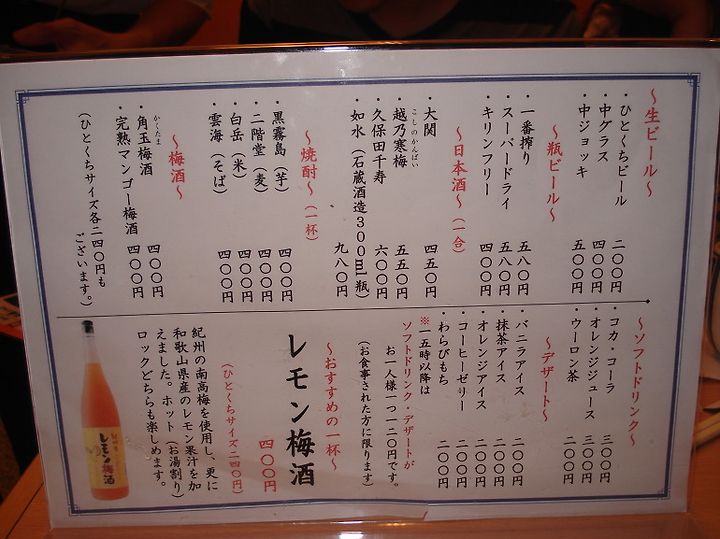 ～生ビール～
・ひとくちビール 二〇〇円
・中グラス 四〇〇円
・中ジョッキ 五〇〇円
～瓶ビール～
・一番搾り 五八〇円
・スーパードライ 五八〇円
・キリンフリー 四〇〇円
～日本酒～（一合）
・大関 四五〇円
・越乃寒梅 五五〇円
こしのかんばい
・久保田千寿 六〇〇円
・如水（石蔵酒造300ml瓶） 九八〇円
～焼酎～（一杯）
・黒霧島（芋） 四〇〇円
・二階堂（麦） 四〇〇円
・白岳（米） 四〇〇円
・雲海（そば） 四〇〇円
～梅酒～
・角玉梅酒 四〇〇円
かくたま
・完熟マンゴー梅酒 四〇〇円
（ひとくちサイズ各二四〇円も
ございます。）
～ソフトドリンク～
・コカ・コーラ 三〇〇円
・オレンジジュース 三〇〇円
・ウーロン茶 二〇〇円
～デザート～
・バニラアイス 二〇〇円
・抹茶アイス 二〇〇円
・オレンジアイス 二〇〇円
・コーヒーゼリー 二〇〇円
・わらびもち 二〇〇円
※一五時以降は
ソフトドリンク・デザートが
お一人様一つ一二〇円です。
（お食事された方に限ります）
～おすすめの一杯～
レモン梅酒
四〇〇円
（ひとくちサイズ二四〇円）
紀州の南高梅を使用し、更に
和歌山県産のレモン果汁を加
えました。ホット（お湯割り）
ロックどちらも楽しめます。
レモン梅酒